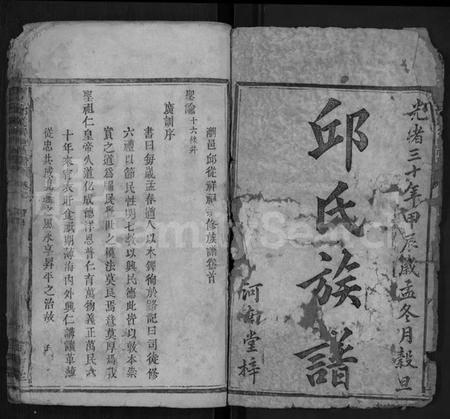 光緒三十年甲辰歲孟冬月穀旦
邱氏族譜
河南堂梓
潮邑邱從祥祖
修族譜卷首
聖諭十六條并
廣訓序
書曰每歲孟春遒人以木鐸徇於路記曰司徒修
六禮以節民性明七教以興民德此皆以敦本崇
實之道為牖民
世之模法莫良焉意莫厚焉我
聖祖仁皇帝久道化成德洋恩普仁育萬物義正萬民六
十年來宵衣旰食祇期薄海內外興仁講讓革薄
從忠共成
永享昇平之治故
FamilySearch